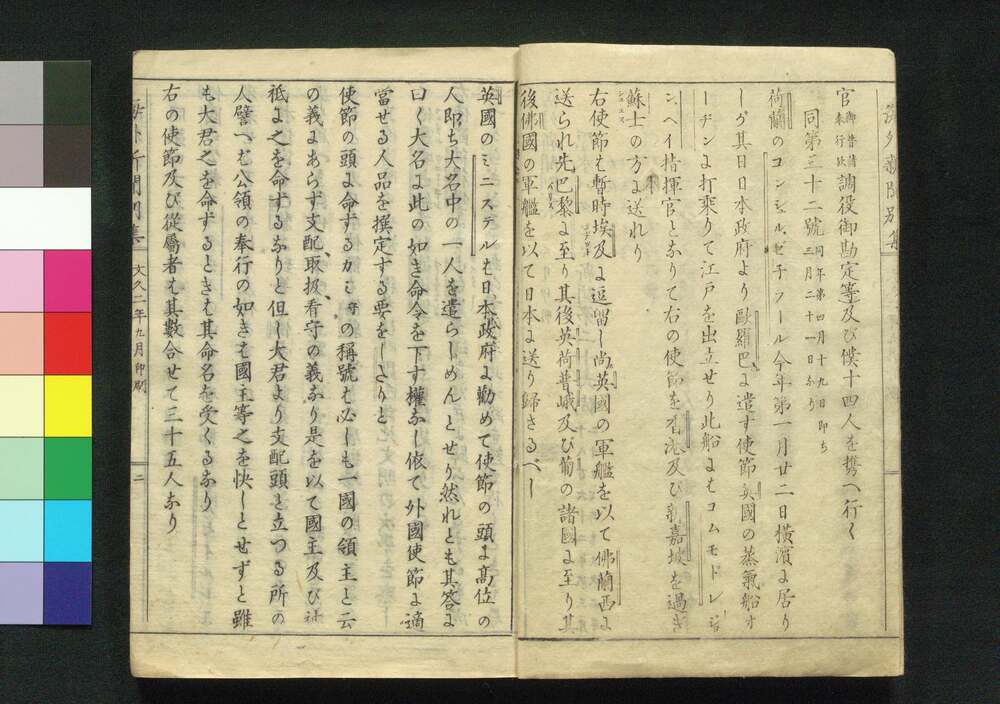 官御普請奉行役調役御勘定等及び僕十四人を携へ行く
同第三十二號同年第四月十九日即ち三月二十一日なり
荷蘭のコンシュル、セ子ラール今年第一月廿二日横濱に居り
しが其日日本政府より歐羅巴に遣す使節英國の蒸氣船オ
ーヂンに打乘りて江戸を出立せり此船にはコムモドレ、
ン、ヘイ指揮官となりて右の使節を香港及び新嘉坡を過ぎ
蘇士スエスの方に送れり
右使節は暫時埃及に逗留し尚英國の軍艦を以て佛蘭西に
送られ先巴黎に至り其後英荷普峨及び葡の諸國に至り其
後佛國の軍艦を以て日本に送り歸さるべし
英國のミニステルは日本政府に勸めて使節の頭に高位の
人即ち大名中の一人を遣らしめんとせり然れとも其答に
曰く大名に此の如き命令を下す權なし依て外國使節に適
當せる人品を撰定する要をしたりと
使節の頭に命するカミ守の稱號は必しも一國の領主と云
の義にあらず支配、取扱、看守の義なり是を以て國主及び
祗に之を命ずるなり但し大君より支配頭と立つる所の
人譬へば公領の奉行の如きは國主等之を快しとせずと雖
も大君之を命ずるときは其命名を受くるなり
右の使節及び從屬者は其數合せて三十五人なり
文久二年九月印刷
二